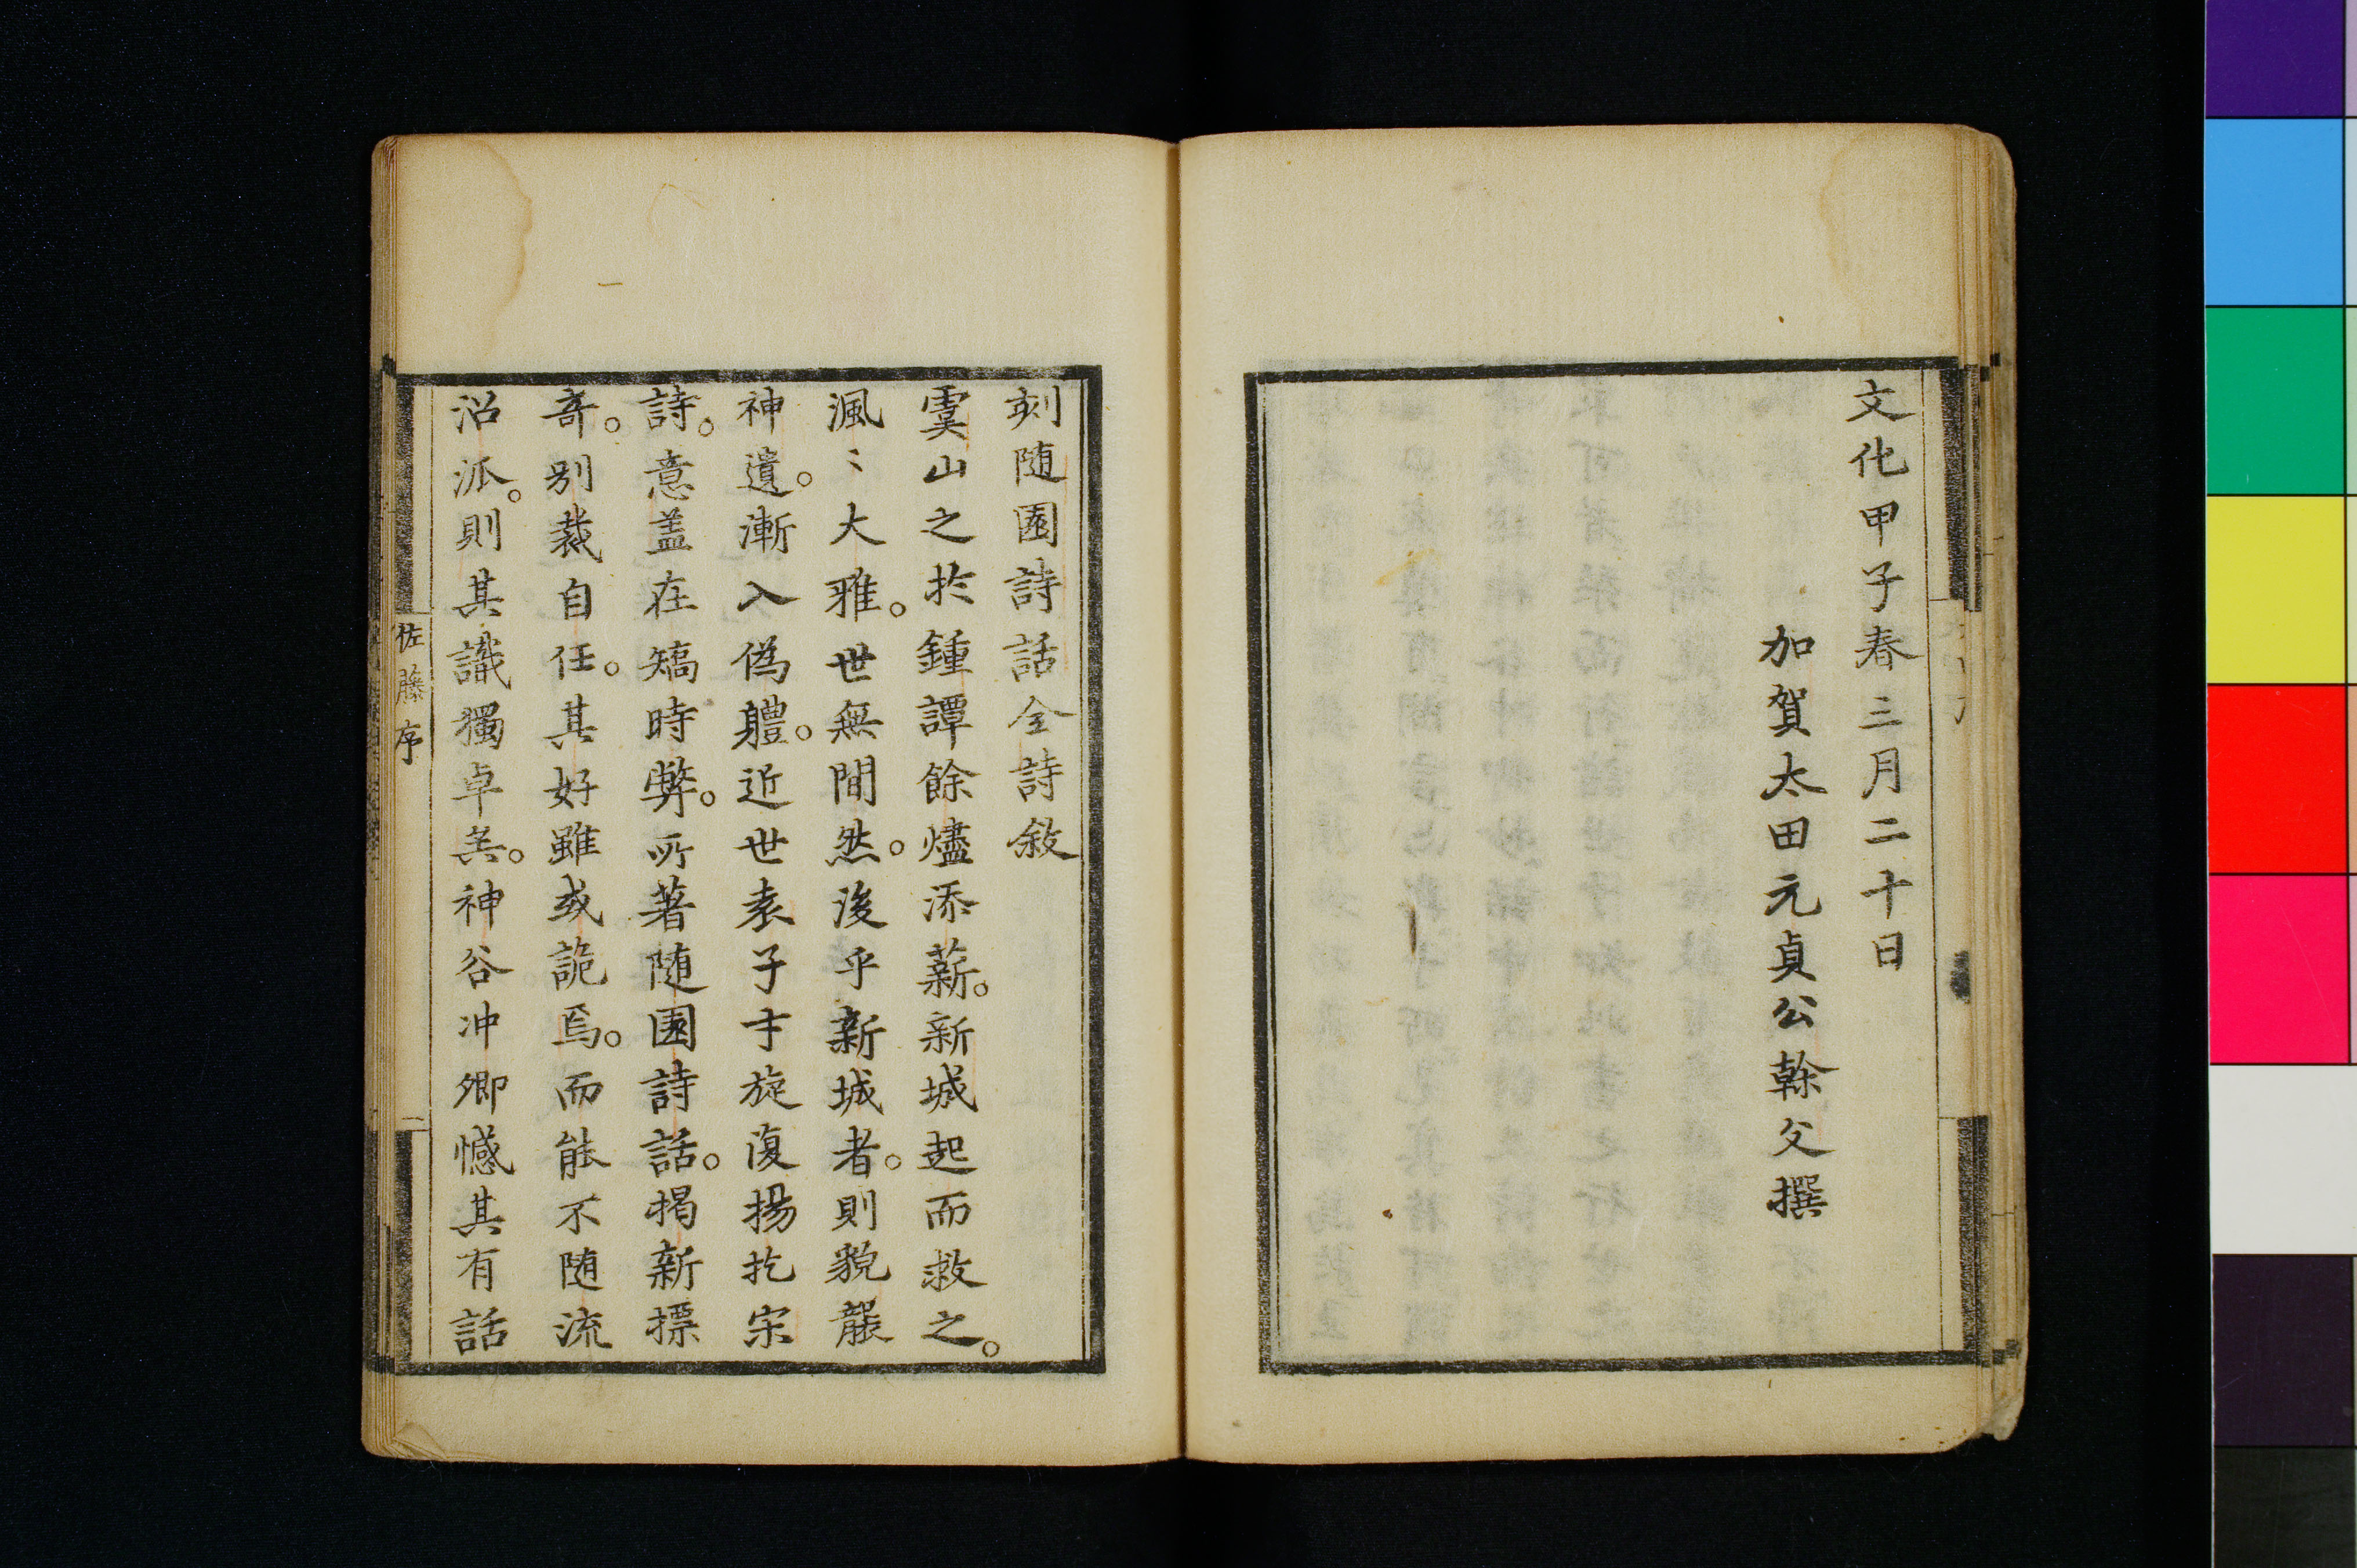 文化甲子春三月二十日
加賀太田元貞公榦父撰
刻随園詩話全詩敘
虞山之於鍾譚餘燼添薪。新城起而救之。
渢〻大雅。世無間然。後乎新城者。則貌襲
神遺。漸入偽軆。近世袁子才旋復揚扢宋
詩。意盖在矯時弊。所著随園詩話。揭新摽
奇。别裁自任。其好雖或詭焉。而能不随流
沿派。則其識獨卓矣。神谷冲卿憾其有話
佐藤序
一